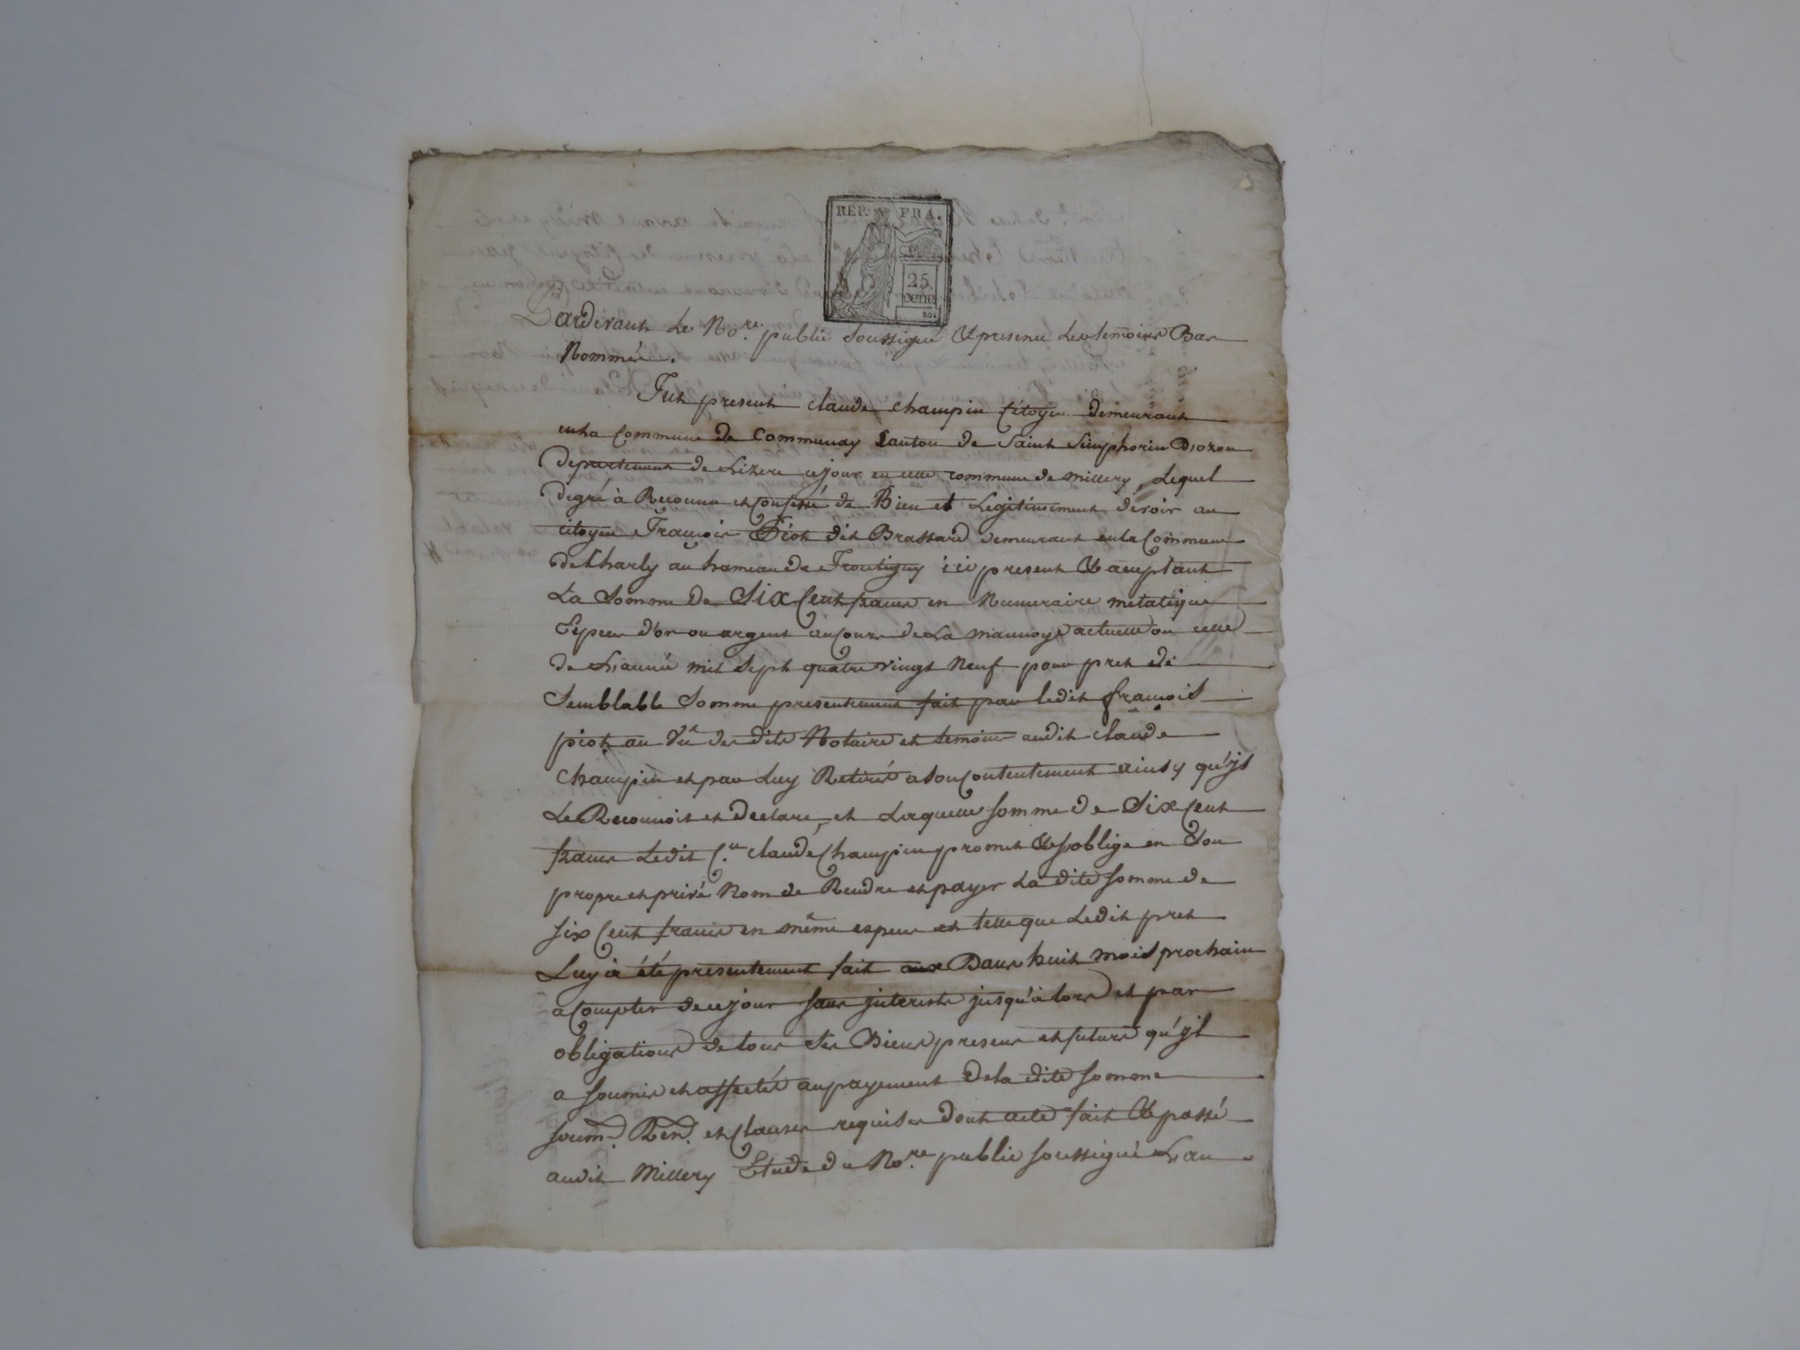 REP. FRA.
25
cent.
Pardevant Le No.re public soussigné & presens Les temoins Bas
Nommés.
Fut present claude champin Citoyen demeurant
en La Commune de Communay Canton de Saint Simphorien Dozon
departement de Lizere ce jour en cette commune de millery, Lequel
de gré à Reconnu et Confessé de Bien et Legitimement devoir au
citoyen François Picot dit Brassard demeurant en la Commune
de Charly au hameau de Frontigny ici present & acceptant
La Somme de Six Cent francs en Numeraire metalique
Espece d'or ou argent au Cours de La monnoye actuelle ou celle
de L'année mil sept quatre vingt Neuf pour pret de
Semblable Somme presentement fait par ledit françois
picot au Vu des dits Notaire et temoins audit claude
Champin et par Luy Retiré a son Contentement ainsy qu'jl
Le Reconnoit et declare, et Laquelle somme de Six Cent
francs Ledit C.en claude Champin promet & s'oblige en Son
propre et privé Nom de Rendre et payer La dite somme de
six Cent francs en même especes et telle que Ledit pret
Luy à été presentement fait Dans huit mois prochain
a Compter de ce jour sans jnterests jusqu'à lors et par
obligations de tous Ses Biens presens et futurs qu'jl
a soumis et affectés au payement de la dite somme
soum.d Ren.d et Clauses requises dont acte fait & passé
audit Millery Etude du No.re public soussigné L'an